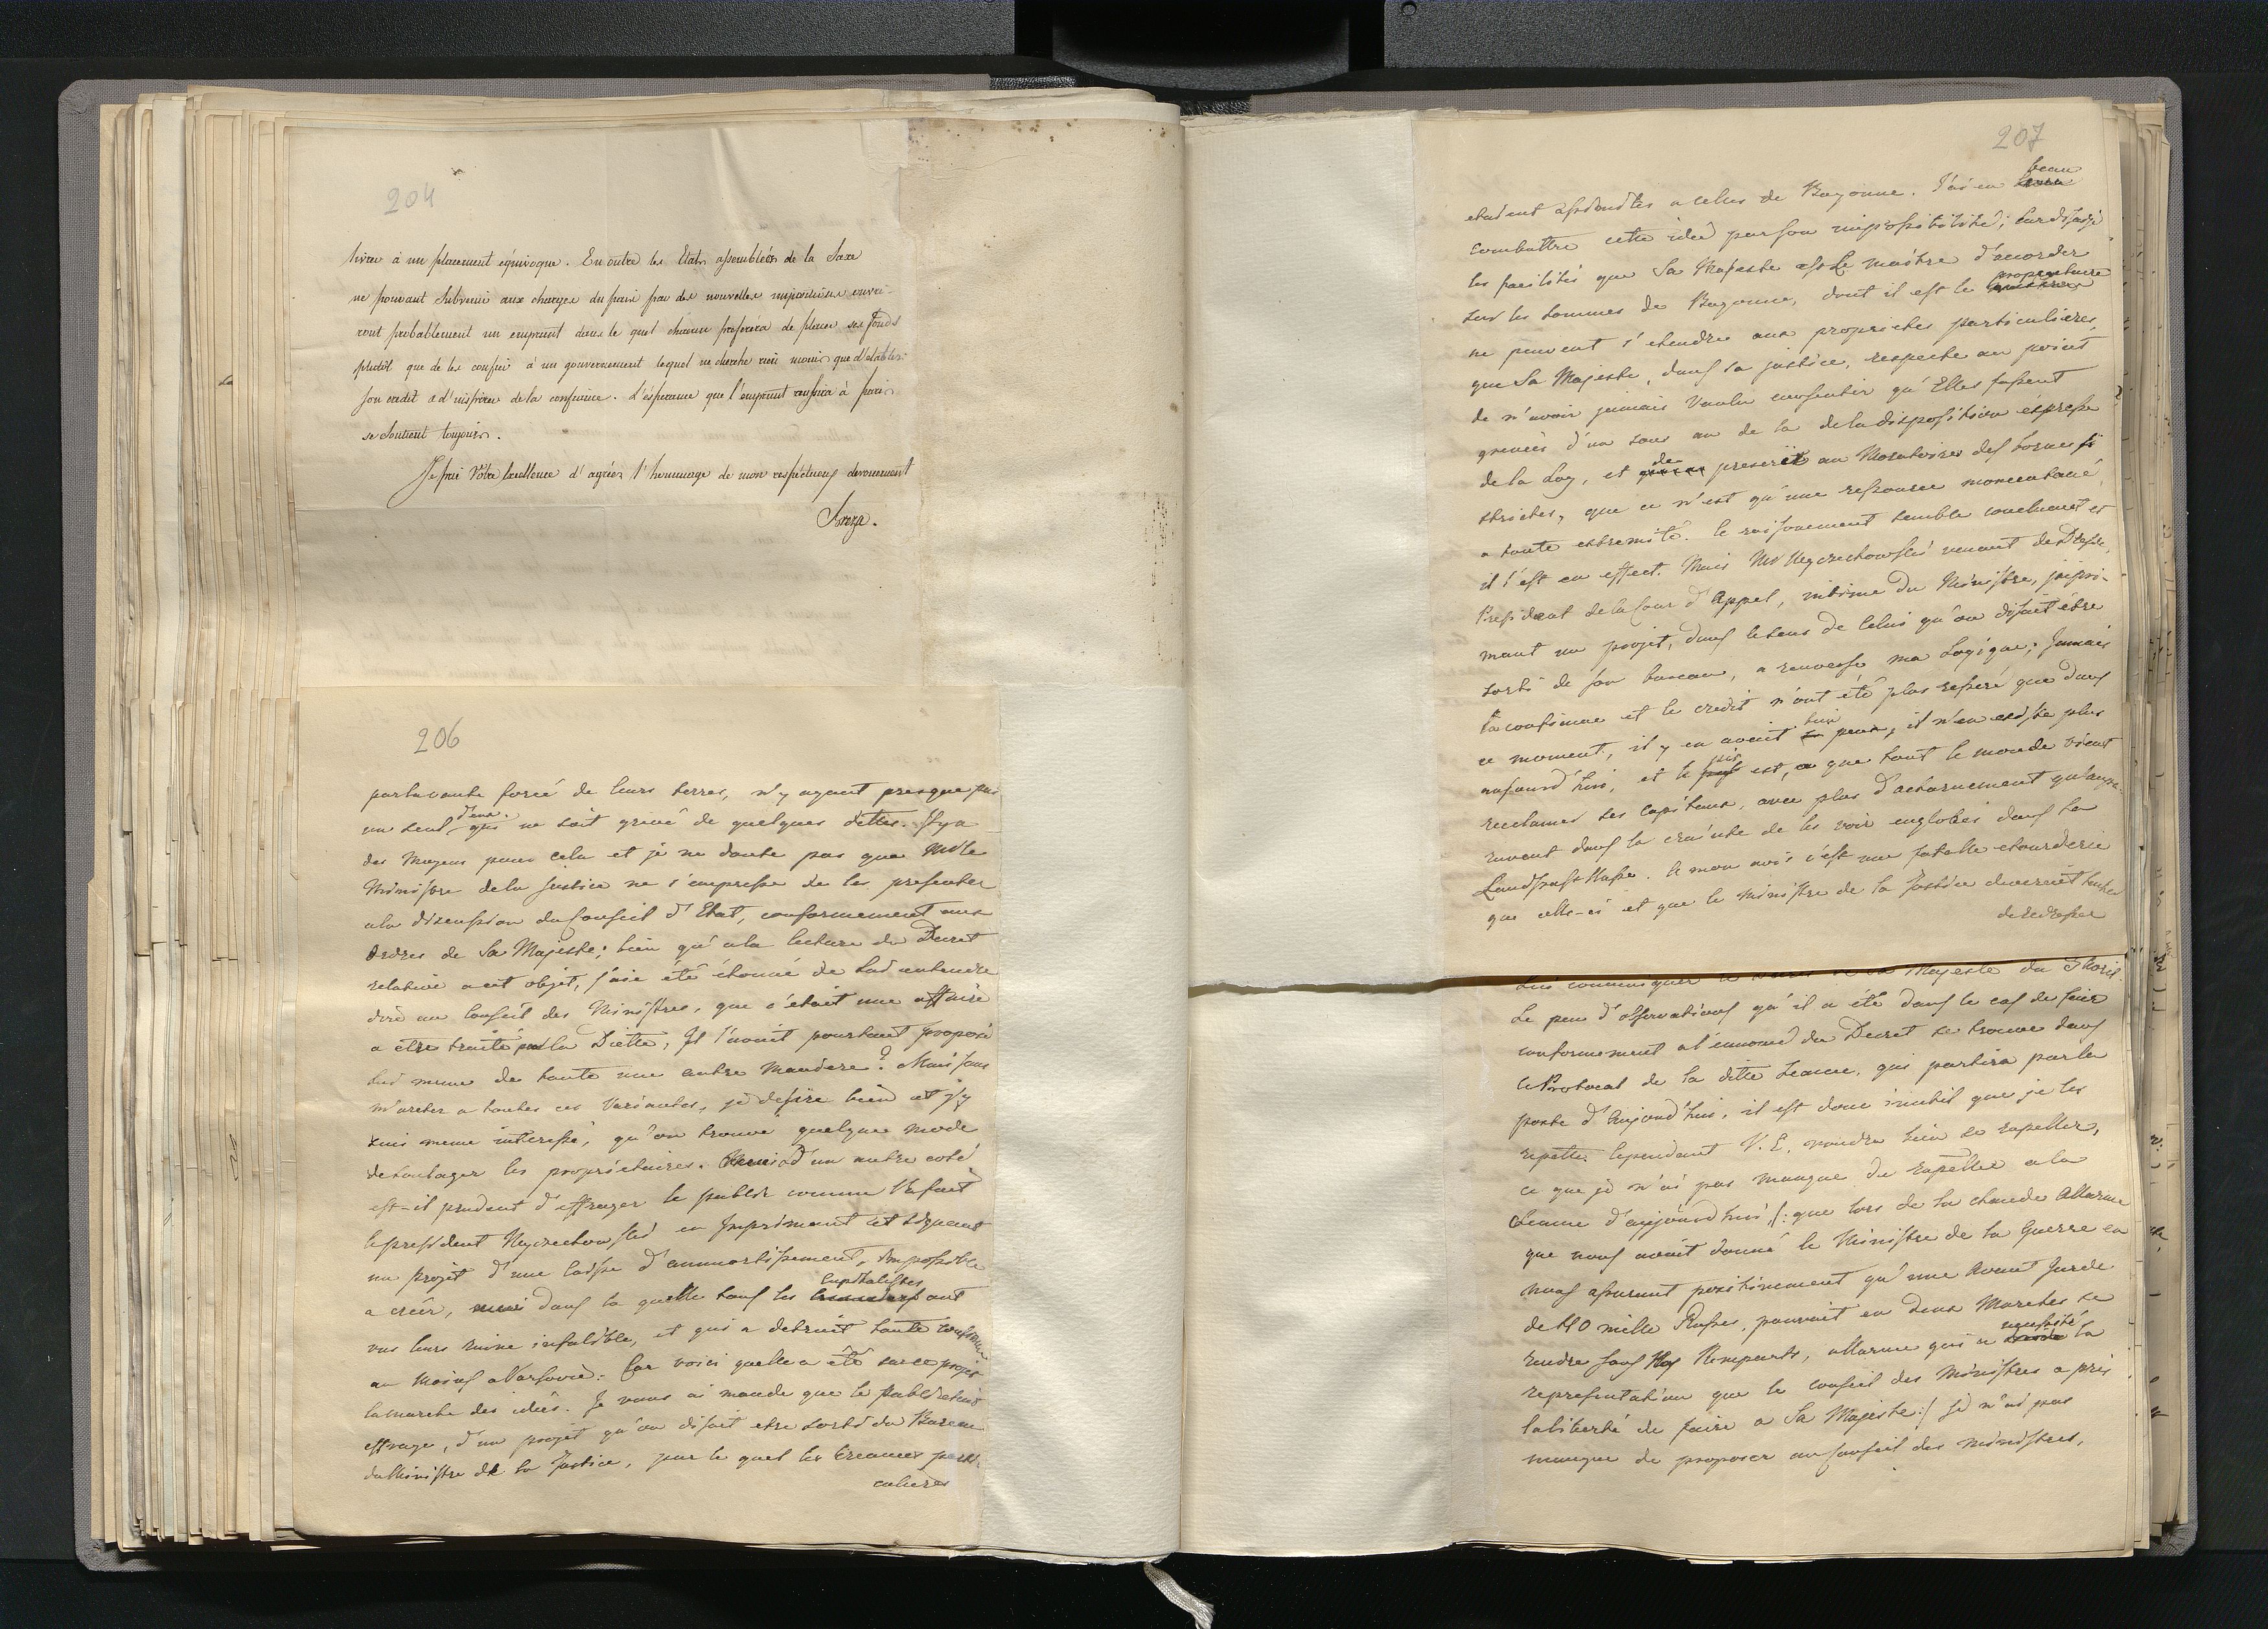 204
livrer à un placement équivoque. En outre les Etats assemblés de la Saxe
ne pouvant subvenir aux charges du païs par des nouvelles impositions ouvri-
ront probablement un emprunt dans le quel chacun preferera de placer ses fonds
plutôt que de les confier à un gouvernement lequel ne cherche rien moins que d'établir
son credit et d'inspirer de la confiance. L'espérance que l'emprunt reussira à paris
se soutient toujours.
Je prie Vôtre Excellence d'agréer l'hommage de mon respectueux devouement
206
par la vente forcé de leurs terres, n'y ayant presque pas
un seul d'eux qui ne soit grevé de quelques dettes. Il y a
des moyens pour cela et je ne doute pas que Mr le
Ministre de la Justice ne s'empresse de les presenter
a la discussion du Conseil d'Etat, conformement aux
Ordres de Sa Majesté; bien qu'a la lecture du Decret
relative a cet objet, j'aie été étonné de lui entendre
dire au Conseil des Ministres, que c'etait une affaire
a être traité par la Diette, Il l'avait pourtant proposé
lui meme de toute une autre maniere? Mais sans
m'areter a toutes ces Variantes, je desire bien et j'y
suis meme interessé, qu'on trouve quelque mode
de soulager les propriétaires. Mais d'un autre coté
est-il prudent d'effrayer le public comme l'a fait
le president Węgrzechowski en Imprimant et signant
un projet d'une Caisse d'ammortissement, impossible
a creér, dans la quelle tous les Capitalistes ont
vus leurs ruine infalible, et qui a detruit toute confiance
au moins a Varsovie. Car voici quelle a été sur ce projet
la marche des idées. Je vous ai mandé que le public etait
effrayé, d'un projet qu'on disait etre sorti du Bureau
du Ministre de la Justice, par le quel les Creances parti-
culieres
207
etaient assimilées a celles de Bayonne. J'ai eu beau
combattre cette idée par son impossibilité; car disais-je
les facilités que Sa Majesté est le maître d'accorder
sur les sommes de Bayonne, dont il est le proprietaire
ne peuvent s'etendre aux propriétés particulieres,
que Sa Majesté, dans sa justice, respecte au point
de n'avoir jamais voulu consentir qu'Elles fussent
grevées d'un sous au de la de la disposition expresse
de la Loy, et de prescrit au Moratoire des bornes si
strictes, que ce n'est qu'une ressource momentané,
a toute extremité. le raisonement semble concluant et
il l'est en effect. Mais Mr Węgrzechowski venant de Dresde,
President de la Cour d'Appel, intime du Ministre, impri-
mant un projet, dans le sens de celui qu'on disait être
sorti de son bureau, a renversé ma Logique; Jamais
la confiance et le credit n'ont été plus resseré que dans
ce moment, il y en avait bien peu, il n'en existe plus
aujourd'hui, et le pis est, que tout le monde vient
reclamer ses capitaux, avec plus d'acharnement qu'aupa-
ravant dans la crainte de les voir englobés dans la
Landschafts Kasse. A mon avis c'est une fatalle etourderie
que celle-ci et que le Ministre de la Justice devrait tacher
de redresser
Le peu d'observations qu'il a été dans le cas de faire
conformement a l'ennoncé du Decret se trouve dans
le Protocol de la ditte Seance, qui partira par la
poste d'Aujourd'hui, il est donc inutil que je les
repette. Cependant V. E. voudra bien se rapeller,
ce que je n'ai pas manqué de rapeller a la
Seance d'aujourdhui, /: que lors de la chaude Allarme
que nous avait donné le Ministre de la Guerre en
nous assurant positivement qu'une Avant Garde
de 40 mille Russes, pouvait en deux Marches se
rendre sous Nos Remparts, allarme qui a necessité la
representation que le Conseil des Ministres a pris
la liberté de faire a Sa Majesté :/ je n'ai pas
manqué de proposer au Conseil des Ministres,